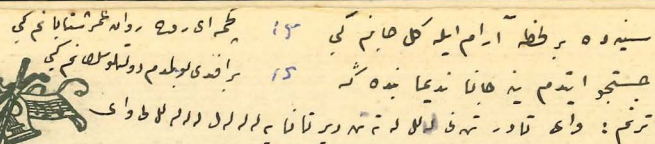 سینه ده بر لحظه آرام ایله كل جانم كبی كچمه ای روح روان عمر شتابانم كبی
جستجو ایتدم ینه جانا ندیما بنده كه بر افندی بولمدم دولتلو سلطانم كبی
ترنم : وای تادر تن نی له ته تن دیر تانا یه له له ل له له له وای